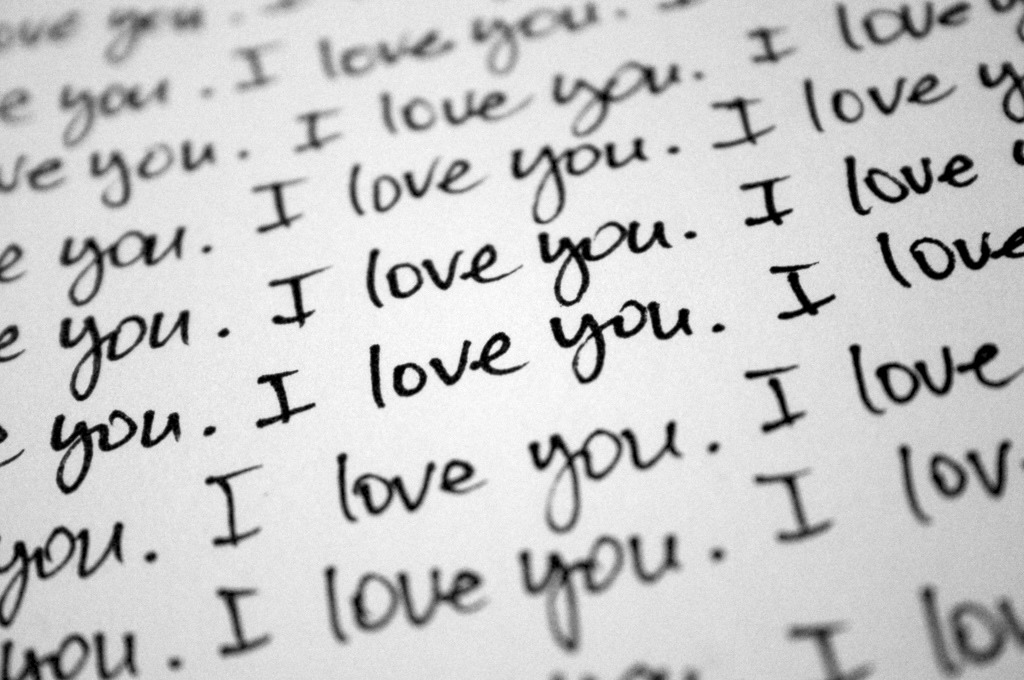 love you.
you. I love you.
ve you. I love you. I love
you. I love you. I love
you. I love you. I love
you. I love you. I love
you. I love you. I love
you. I love you. I
I